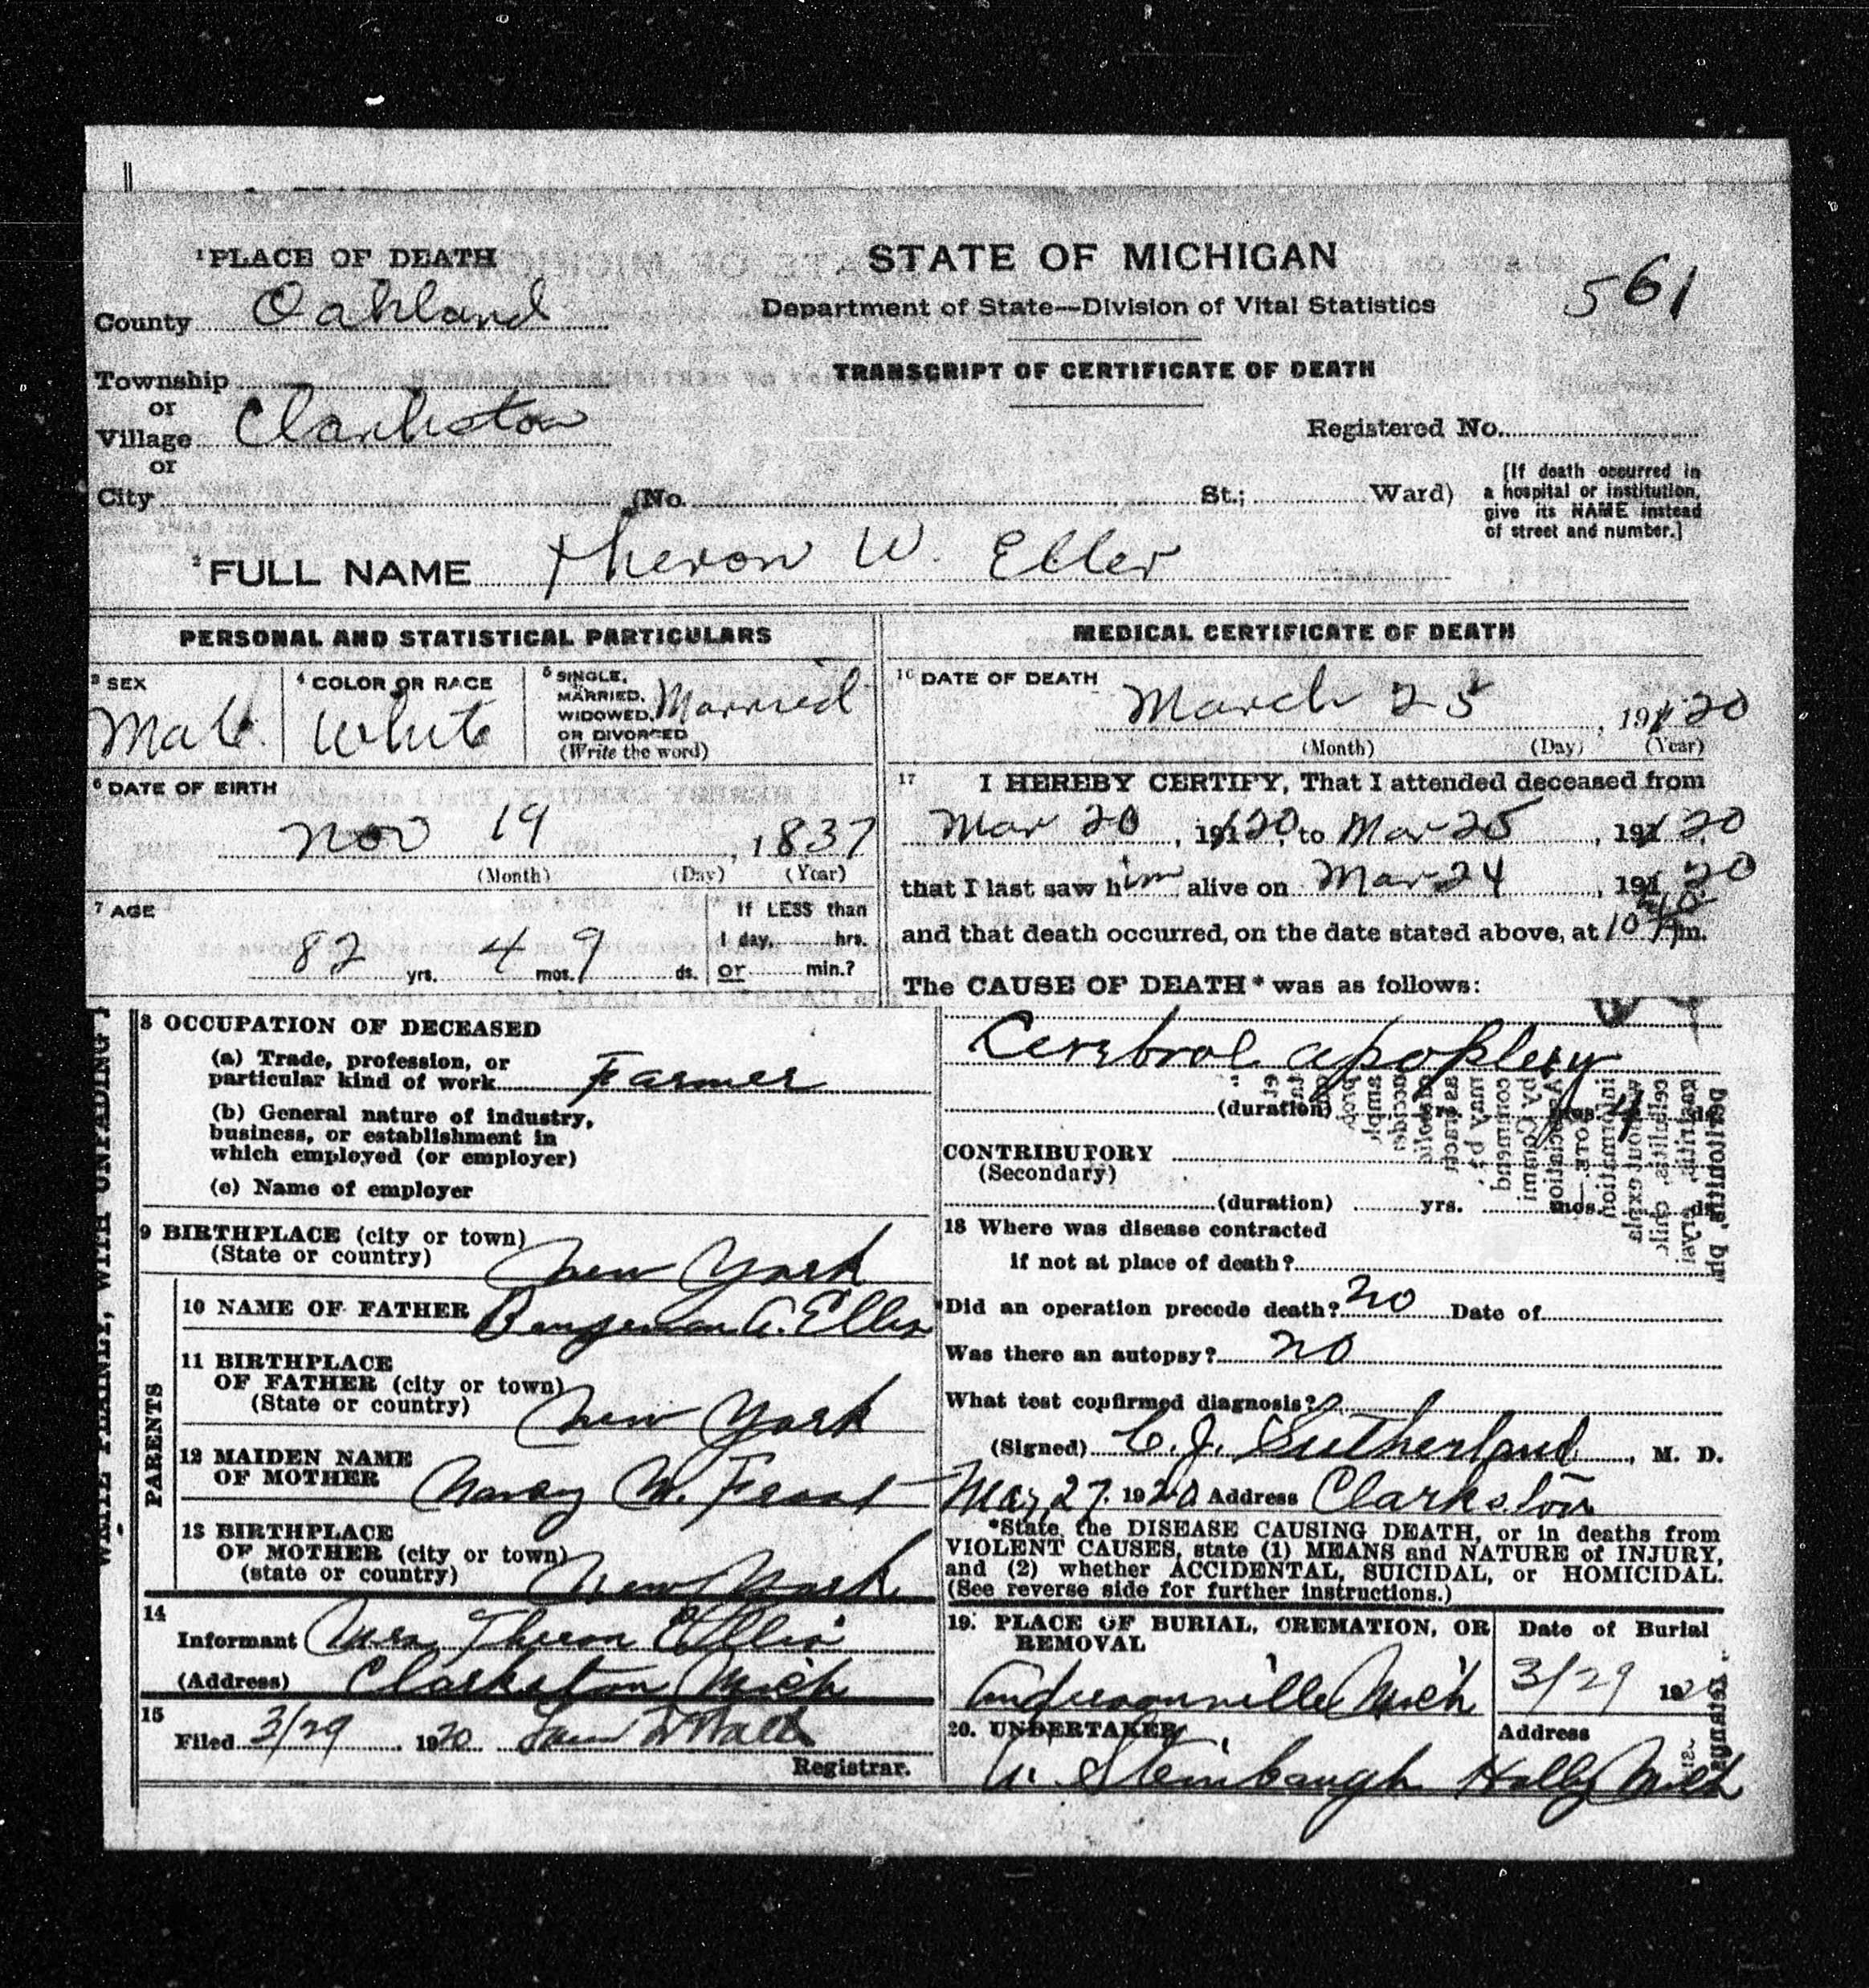 1 PLACE OF DEATH
STATE OF MICHIGAN
561
County Oakland
Department of State—Division of Vital Statistics
Township
TRANSCRIPT OF CERTIFICATE OF DEATH
or
Village Clarkston
Registered No.
or
City (No. St.; Ward)
[If death occurred in
a hospital or institution,
give its NAME instead
of street and number.]
2 FULL NAME Theron W. Eller
PERSONAL AND STATISTICAL PARTICULARS
3 SEX
Male
4 COLOR OR RACE
White
5 SINGLE,
MARRIED,
WIDOWED,
OR DIVORCED
(Write the word)
Married
6 DATE OF BIRTH
Nov 19, 1837
(Month) (Day) (Year)
7 AGE
82 yrs. 4 mos. 9 ds.
If LESS than
1 day, hrs.
or min.?
8 OCCUPATION OF DECEASED
(a) Trade, profession, or
particular kind of work Farmer
(b) General nature of industry,
business, or establishment in
which employed (or employer)
(c) Name of employer
9 BIRTHPLACE (city or town)
(State or country) New York
PARENTS
10 NAME OF FATHER Benjeman A. Ellis
11 BIRTHPLACE
OF FATHER (city or town)
(State or country) New York
12 MAIDEN NAME
OF MOTHER Nancy M. Frost
13 BIRTHPLACE
OF MOTHER (city or town)
(state or country) New York
14
Informant Mrs. Theron Ellis
(Address) Clarkston Mich
15
Filed 3/29 1920
Registrar.
WRITE PLAINLY, WITH UNFADING
MEDICAL CERTIFICATE OF DEATH
16 DATE OF DEATH
March 25, 1920
(Month) (Day) (Year)
17 I HEREBY CERTIFY, That I attended deceased from
Mar 20, 1920, to Mar 25, 1920
that I last saw him alive on Mar 24, 1920
and that death occurred, on the date stated above, at 10 m.
The CAUSE OF DEATH* was as follows:
Cerebral apoplexy
(duration) yrs. mos. 4 ds.
CONTRIBUTORY
(Secondary)
(duration) yrs. mos. ds.
18 Where was disease contracted
if not at place of death?
Did an operation precede death? no Date of
Was there an autopsy? no
What test confirmed diagnosis?
(Signed) C. J. Sutherland, M. D.
Mar 27, 1920 Address Clarkston
*State the DISEASE CAUSING DEATH, or in deaths from
VIOLENT CAUSES, state (1) MEANS and NATURE of INJURY,
and (2) whether ACCIDENTAL, SUICIDAL, or HOMICIDAL.
(See reverse side for further instructions.)
19. PLACE OF BURIAL, CREMATION, OR
REMOVAL
Andersonville Mich
Date of Burial
3/29 1920
20. UNDERTAKER
Steinbaugh
Address
Holly Mich